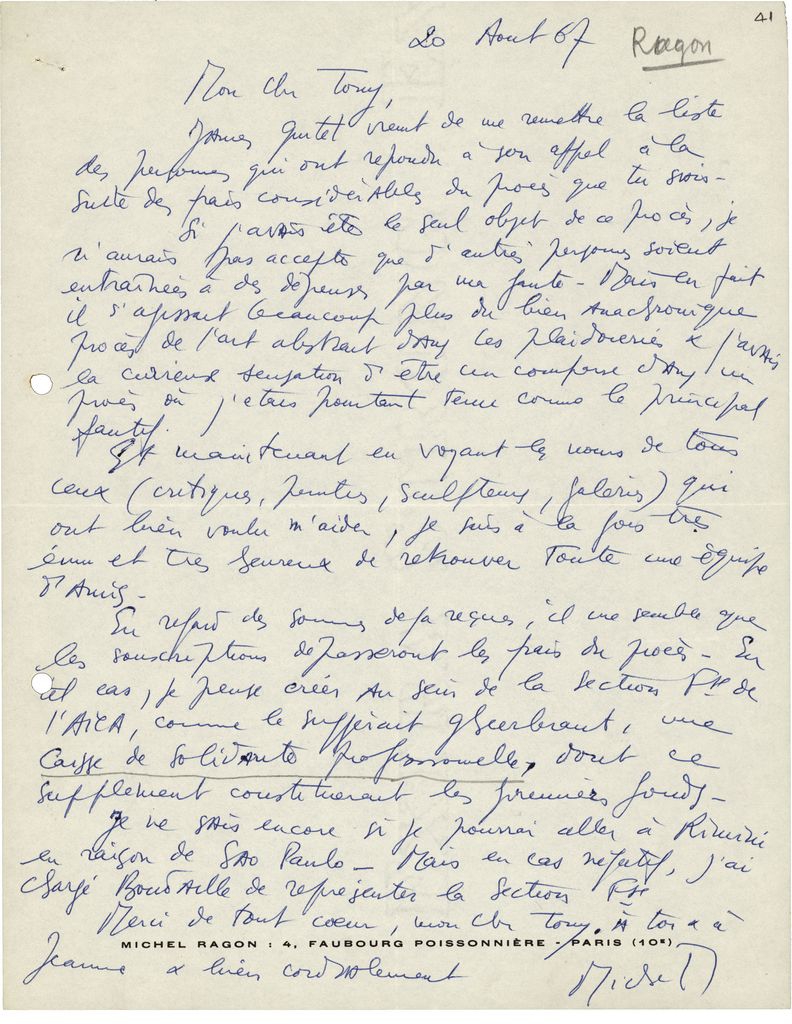 41
20 Aout 67 Ragon
Mon cher Tony,
James vient de me remettre la liste
des personnes qui ont repondu à son appel à la
suite des frais considérables du procès que tu sais-
Si j'avais été le seul objet de ce procès, je
n'aurais pas accepté que d'autres personnes soient
entraînées à des dépenses par ma faute - Mais en fait
il s'agissait beaucoup plus du bien anachronique
procès de l'art abstrait dans les plaidoieries & j'avais
la curieuse sensation d'être un comparse dans un
procès où j'etais pourtant tenu comme le principal
fautif.
Et maintenant en voyant les noms de tous
ceux (critiques, peintres, sculpteurs, galeries) qui
ont bien voulu m'aider, je suis à la fois très
ému et très heureux de retrouver toute une équipe
d'Amis-
En regard des sommes deja reçues, il me semble que
les souscriptions dépasseront les frais du procès - En
tel cas, je pense créer au sein de la section Fse de
l'AICA, comme le suggérait Gheerbrant, une
Caisse de Solidarité professionnelle, dont ce
supplément constituerait les premiers fonds-
Je ne sais encore si je pourrai aller à Rimini
en raison de Sao Paulo - Mais en cas négatif, j'ai
chargé Boudaille de représenter la Section Fse
Merci de tout coeur, mon cher Tony. A toi & à
MICHEL RAGON : 4, FAUBOURG POISSONNIÈRE - PARIS (10E)
Jeanne & bien cordialement
Michel